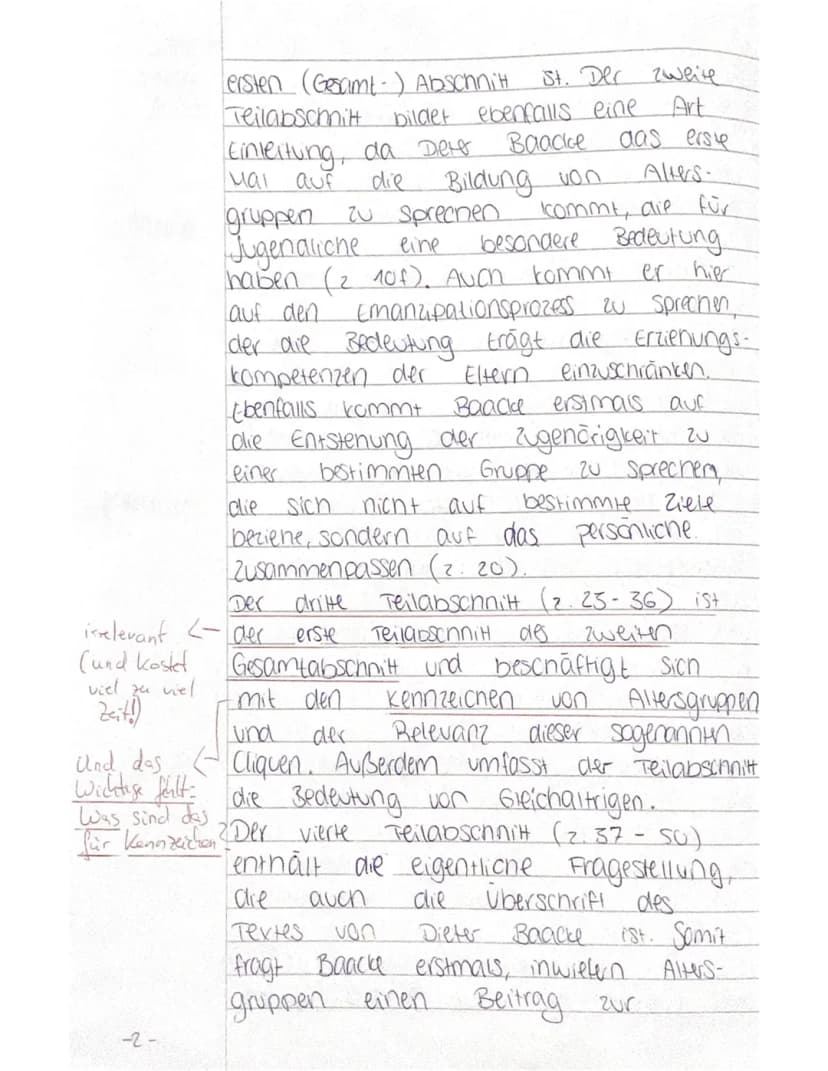 ersten (Gesamt-) Abschnitt ist. Der zweite
Teilabschnitt bildet ebenfalls eine Art
Einleitung, da Dieter Baacke das erste
Mal auf die Bildung von Alters-
gruppen zu sprechen kommt, die für
Jugendliche eine besondere Bedeutung
haben (Z 10f). Auch kommt er hier
auf den Emanzipationsprozess zu sprechen,
der die Bedeutung trägt die Erziehungs-
kompetenzen der Eltern einzuschränken.
Ebenfalls kommt Baacke erstmals auf
die Entstehung der Zugehörigkeit zu
einer bestimmten Gruppe zu sprechen,
die sich nicht auf bestimmte Ziele
beziehe, sondern auf das persönliche
Zusammenpassen (Z. 20).
Der dritte Teilabschnitt (Z. 25-36) ist
der erste Teilabschnitt des zweiten
Gesamtabschnitt und beschäftigt sich
mit den Kennzeichen von Altersgruppen
und der Relevanz dieser sogenannten
Cliquen. Außerdem umfasst der Teilabschnitt
die Bedeutung von Gleichaltrigen.
Der vierte Teilabschnitt (Z. 37 - 50)
enthält die eigentliche Fragestellung,
die auch die Überschrift des
Textes von Dieter Baacke ist. Somit
fragt Baacke erstmals, inwiefern Alters-
gruppen einen Beitrag zur
irrelevant <-
(und kostet
viel zu viel
Zeit!)
Und das <-
Wichtige fehlt:
Was sind das
für Kennzeichen?
-2-